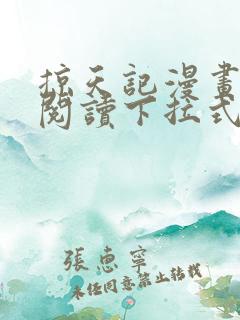 掠天記漫畫
閱讀下拉式
張惠寧
未经同意禁止转载